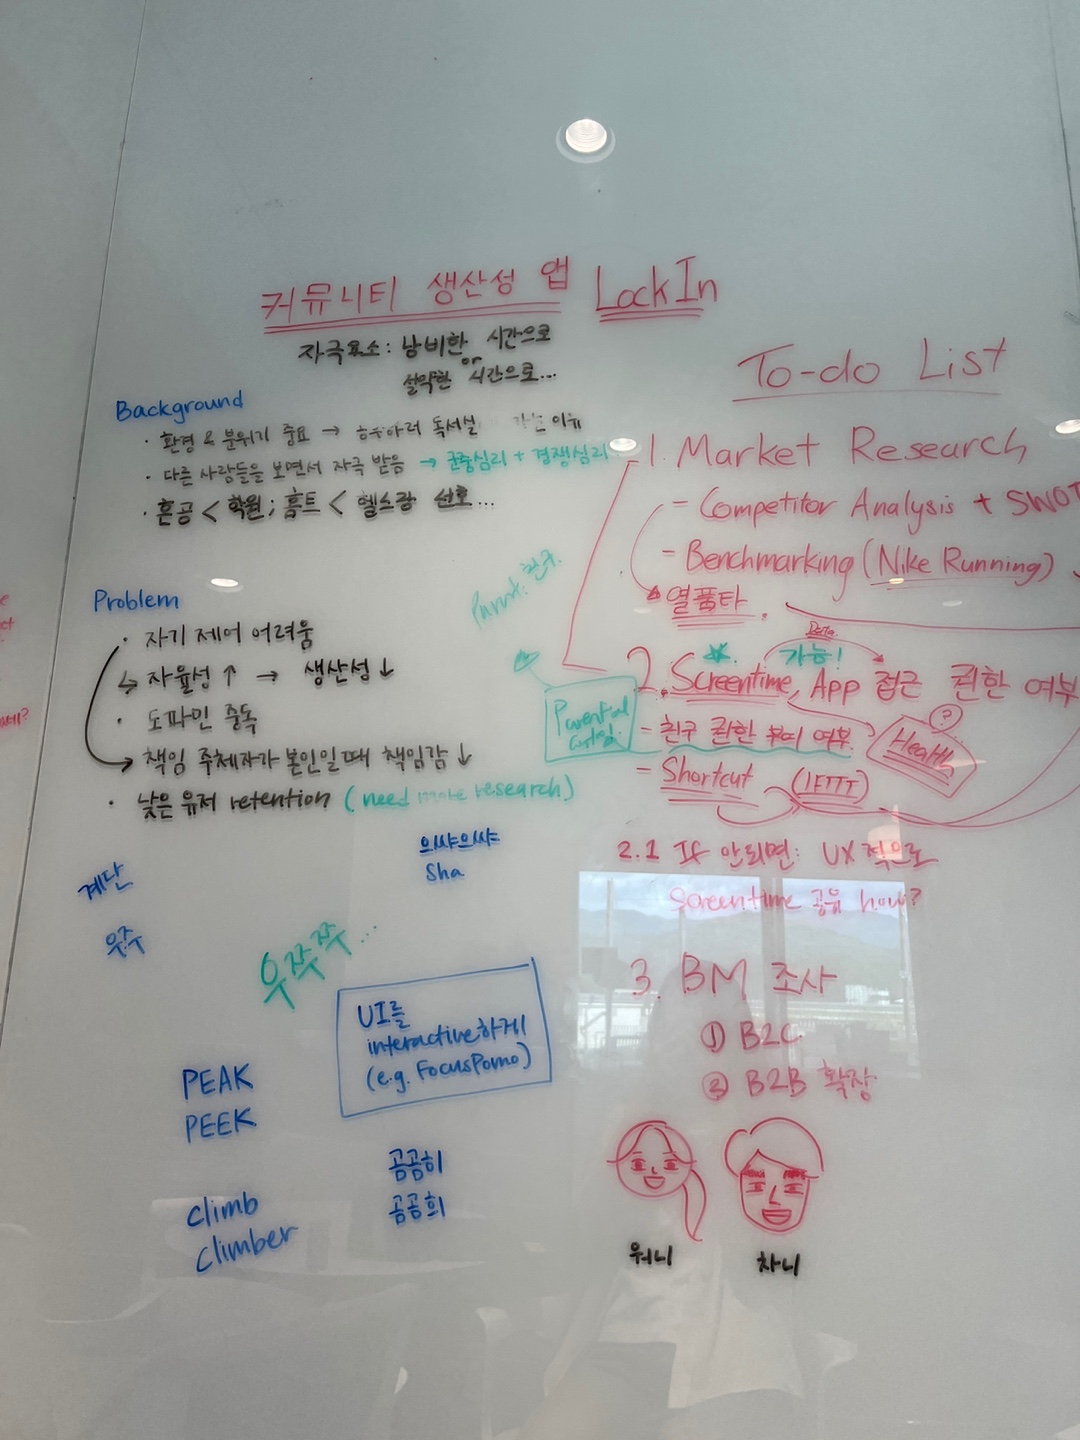 커뮤니티 생산성 앱 LockIn
자극요소: 낭비한 시간으로
or
절약한 시간으로...
Background
· 환경 & 분위기 중요 → 독서실 가는 이유
· 다른 사람들을 보면서 자극 받음 → 군중심리 + 경쟁심리
· 혼공 < 학원; 홈트 < 헬스장 선호...
Problem
· 자기 제어 어려움
↳ 자율성 ↑ → 생산성 ↓
· 도파민 중독
→ 책임 주체자가 본인일 때 책임감 ↓
· 낮은 유저 retention (need more research)
계단
우주
의쌰의쌰
Sha
우쭈쭈...
UI를
interactive하게
(e.g. FocusPomo)
PEAK
PEEK
climb
climber
곰곰히
곰곰희
To-do List
1. Market Research
- Competitor Analysis + SWOT
- Benchmarking (Nike Running)
열품타
Data
가능!
2. Screentime, App 접근 권한 여부
Parental
- 친구 권한 부여 여부
?
Health
- Shortcut (IFTTT)
2.1 If 안되면: UX적으로
Screentime 공유 how?
3. BM 조사
① B2C
② B2B 확장
워니
차니